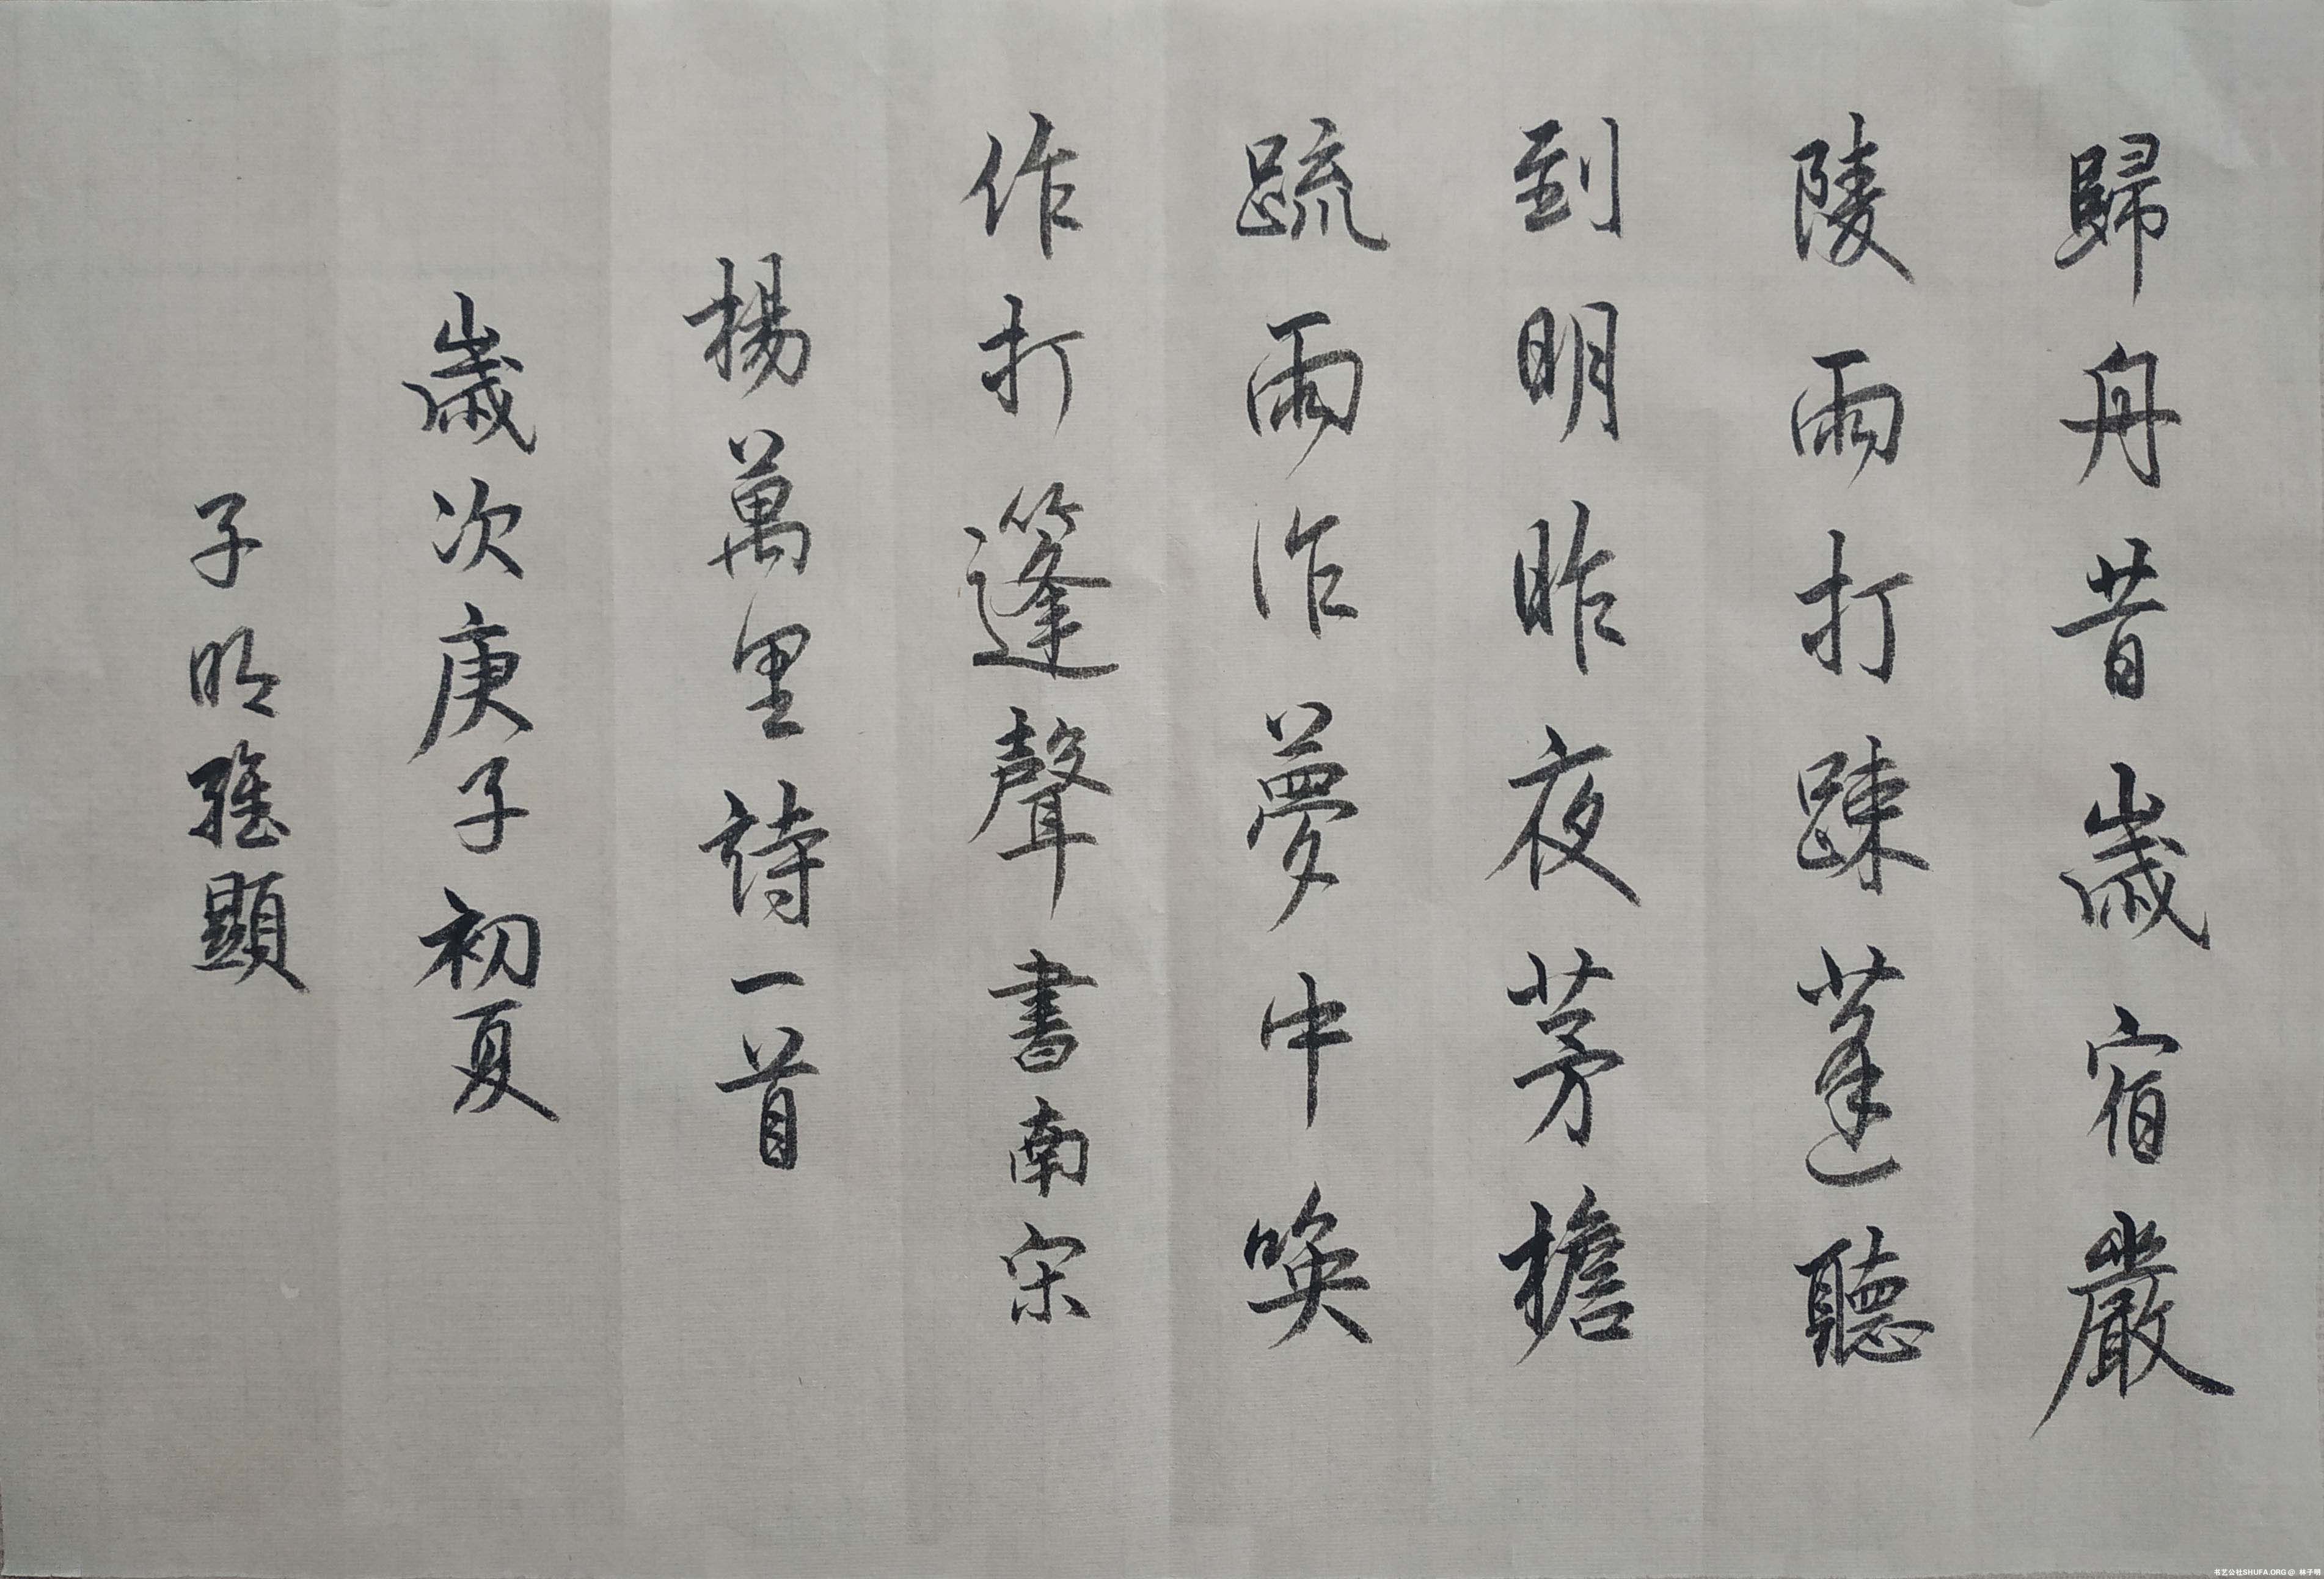 歸舟昔歲宿嚴
陵雨打踈蓬聽
到明昨夜茅檐
疏雨作夢中喚
作打篷聲書南宋
楊萬里詩一首
歲次庚子初夏
子明雅顯
书艺公社SHUFA.ORG @ 林子明